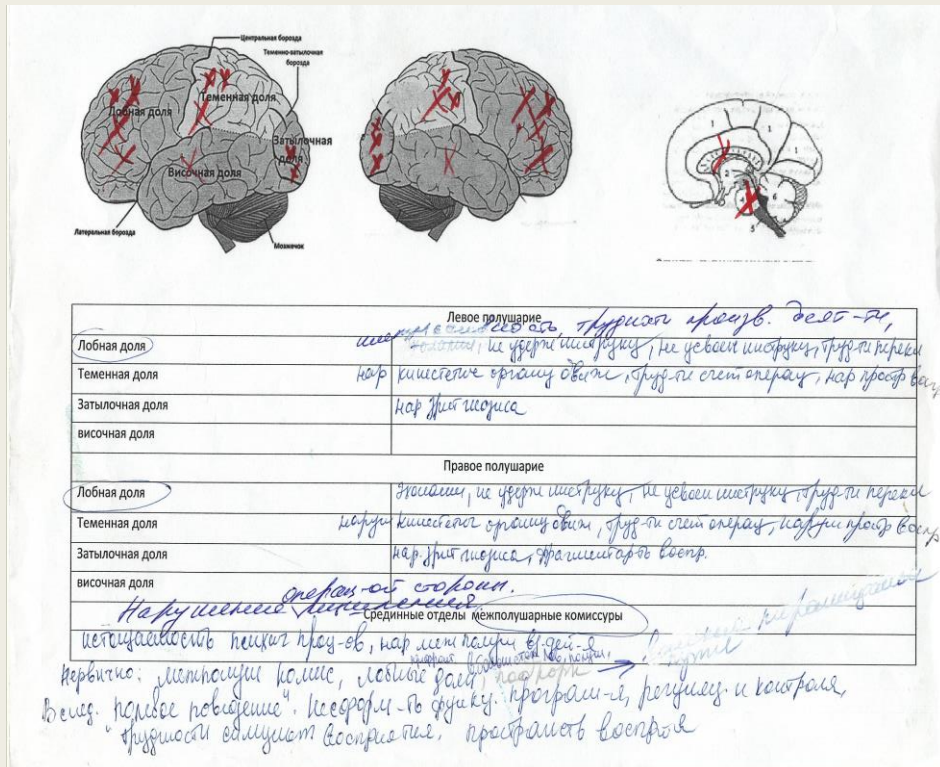 Центральная борозда
Теменно-затылочная
борозда
Лобная доля
Теменная доля
Затылочная
доля
Височная доля
Латеральная борозда
Мозжечок
1
1
1
2
4
5
6
Левое полушарие
трудности произв. деят-ти,
Лобная доля
не удерж инструкц, не усвоен инструкц, труд-ти перекл
Теменная доля
нар кинестетич организ движ, труд-ти счет операц, нар простр восп
Затылочная доля
нар зрит гнозиса
височная доля
Правое полушарие
Лобная доля
Эхолалии, не удерж инструкц, не усвоен инструкц, труд-ти перекл
Теменная доля
наруш кинестетич организ движ, труд-ти счет операц, наруш простр воспр
Затылочная доля
нар. зрит гнозиса, фрагментарть воспр.
височная доля
операц-ой стороны.
Нарушение мышления.
Срединные отделы межполушарные комиссуры
истощаемость психич проц-ов, нар межполуш вз-дей-я
Первично: межполуш комис, лобные доли, подкорк
Вслед. "полевое поведение". Несформ-ть функц. програм-я, регуляц. и контроля,
трудности симульт восприятия. пространств восприя